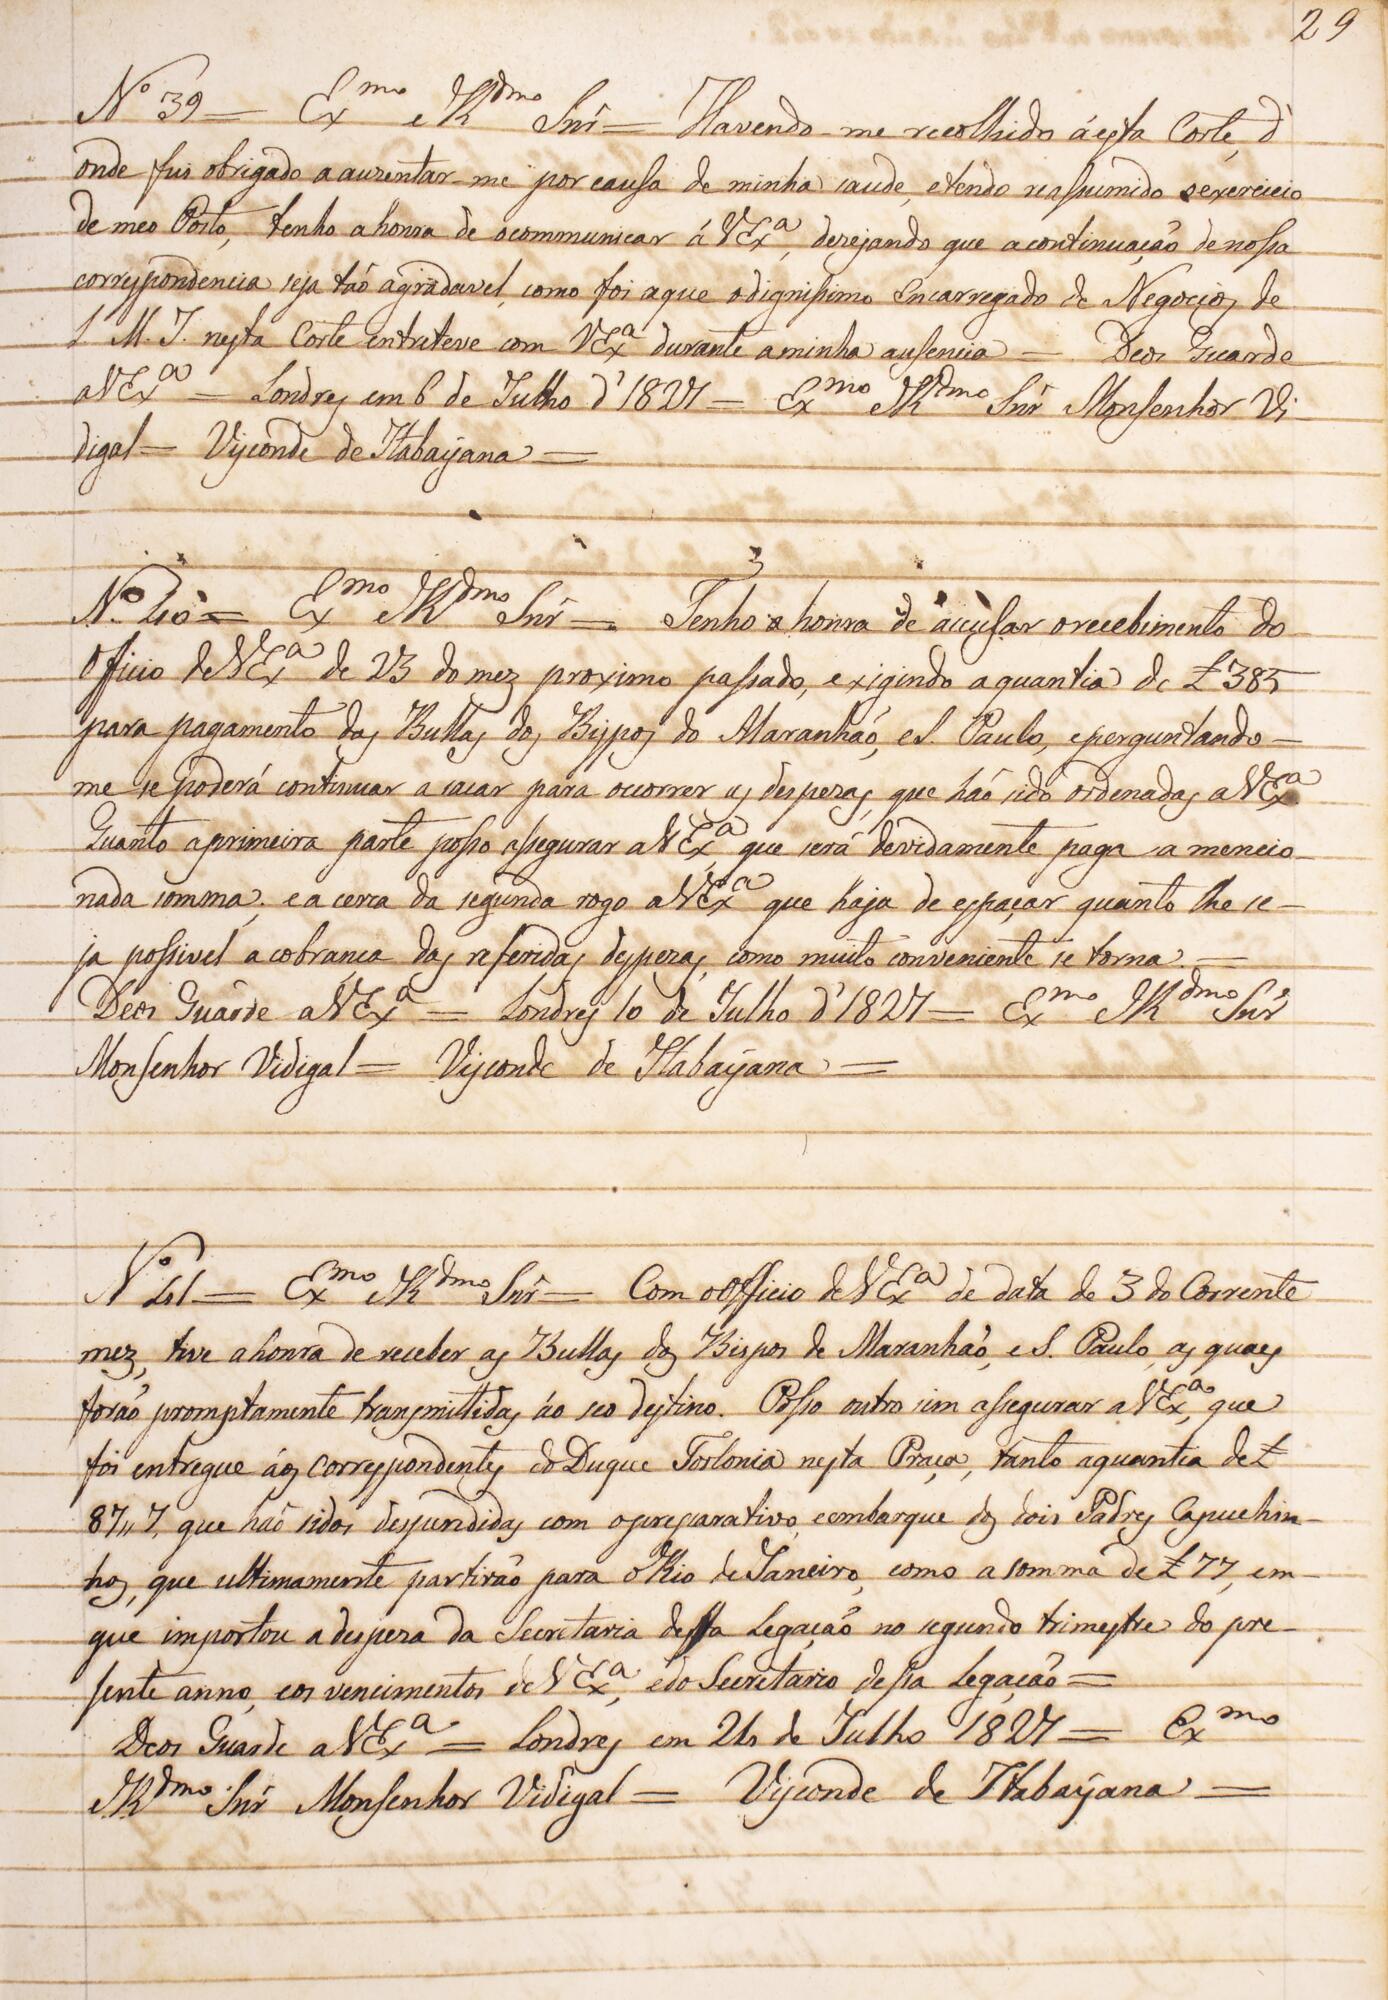 29
Nº 39 = Exmo e Rdmo Snr̃ = Havendo-me recolhido áesta Corte, d'
onde fui obrigado aauzentar-me por causa de minha saude, etendo reassumido oexercicio
de meo Posto, tenho ahonra de ocommunicar á VExa, dezejando que acontinuação de nossa
correspondencia seja taõ agradavel, como foi aque odignissimo Encarregado de Negocios de
S. M. I. nesta Corte entreteve com VExa durante aminha ausencia = Deos Guarde
aVExa = Londres em 6 de Julho d'1827 = Exmo eRdmo Snr̃ Monsenhor Vi
digal = Visconde de Itabayana =
Nº 40 = Exmo eRdmo Snr̃ = Tenho a honra de accusar orecebimento do
Officio deVExa de 23 do mez proximo passado, exigindo aquantia de £385
para pagamento das Bullas dos Bispos do Maranhaõ, eS. Paulo, eperguntando-
me se poderá continuar a sacar para occorrer as despezas, que haõ sido ordenadas aVExa
Quanto aprimeira parte posso assegurar aVExa, que será devidamente paga a mencio-
nada somma; e a cerca da segunda rogo aVExa que haja de espaçar quanto lhe se-
ja possivel a cobranca das referidas despezas, como muito conveniente se torna. =
Deos Guarde aVExa = Londres 10 de Julho d'1827 = Exmo eRdmo Snr̃
Monsenhor Vidigal = Visconde de Itabayana =
Nº 41 = Exmo eRdmo Snr̃ = Com oOfficio deVExa de data de 3 do Corrente
mez, tive ahonra de receber as Bullas dos Bispos de Maranhaõ, eS. Paulo, as quaes
foraõ promptamente transmittidas áo seo destino. Posso outro sim assegurar aVExa, que
foi entregue áos Correspondentes do Duque Torlonia nesta Praça, tanto aquantia de £
87,,7, que haõ sidos despendidas com opreparativo, eembarque dos dois Padres Capuchin-
hos, que ultimamente partiraõ para oRio deJaneiro, como a somma de £77, em-
que importou adespeza da Secretaria dessa Legaçaõ no segundo trimestre do pre-
sente anno, eos vencimentos deVExa, edo Secretario dessa Legaçaõ =
Deos Guarde aVExa = Londres em 24 de Julho 1827 = Exmo
eRdmo Snr̃ Monsenhor Vidigal = Visconde de Itabayana =